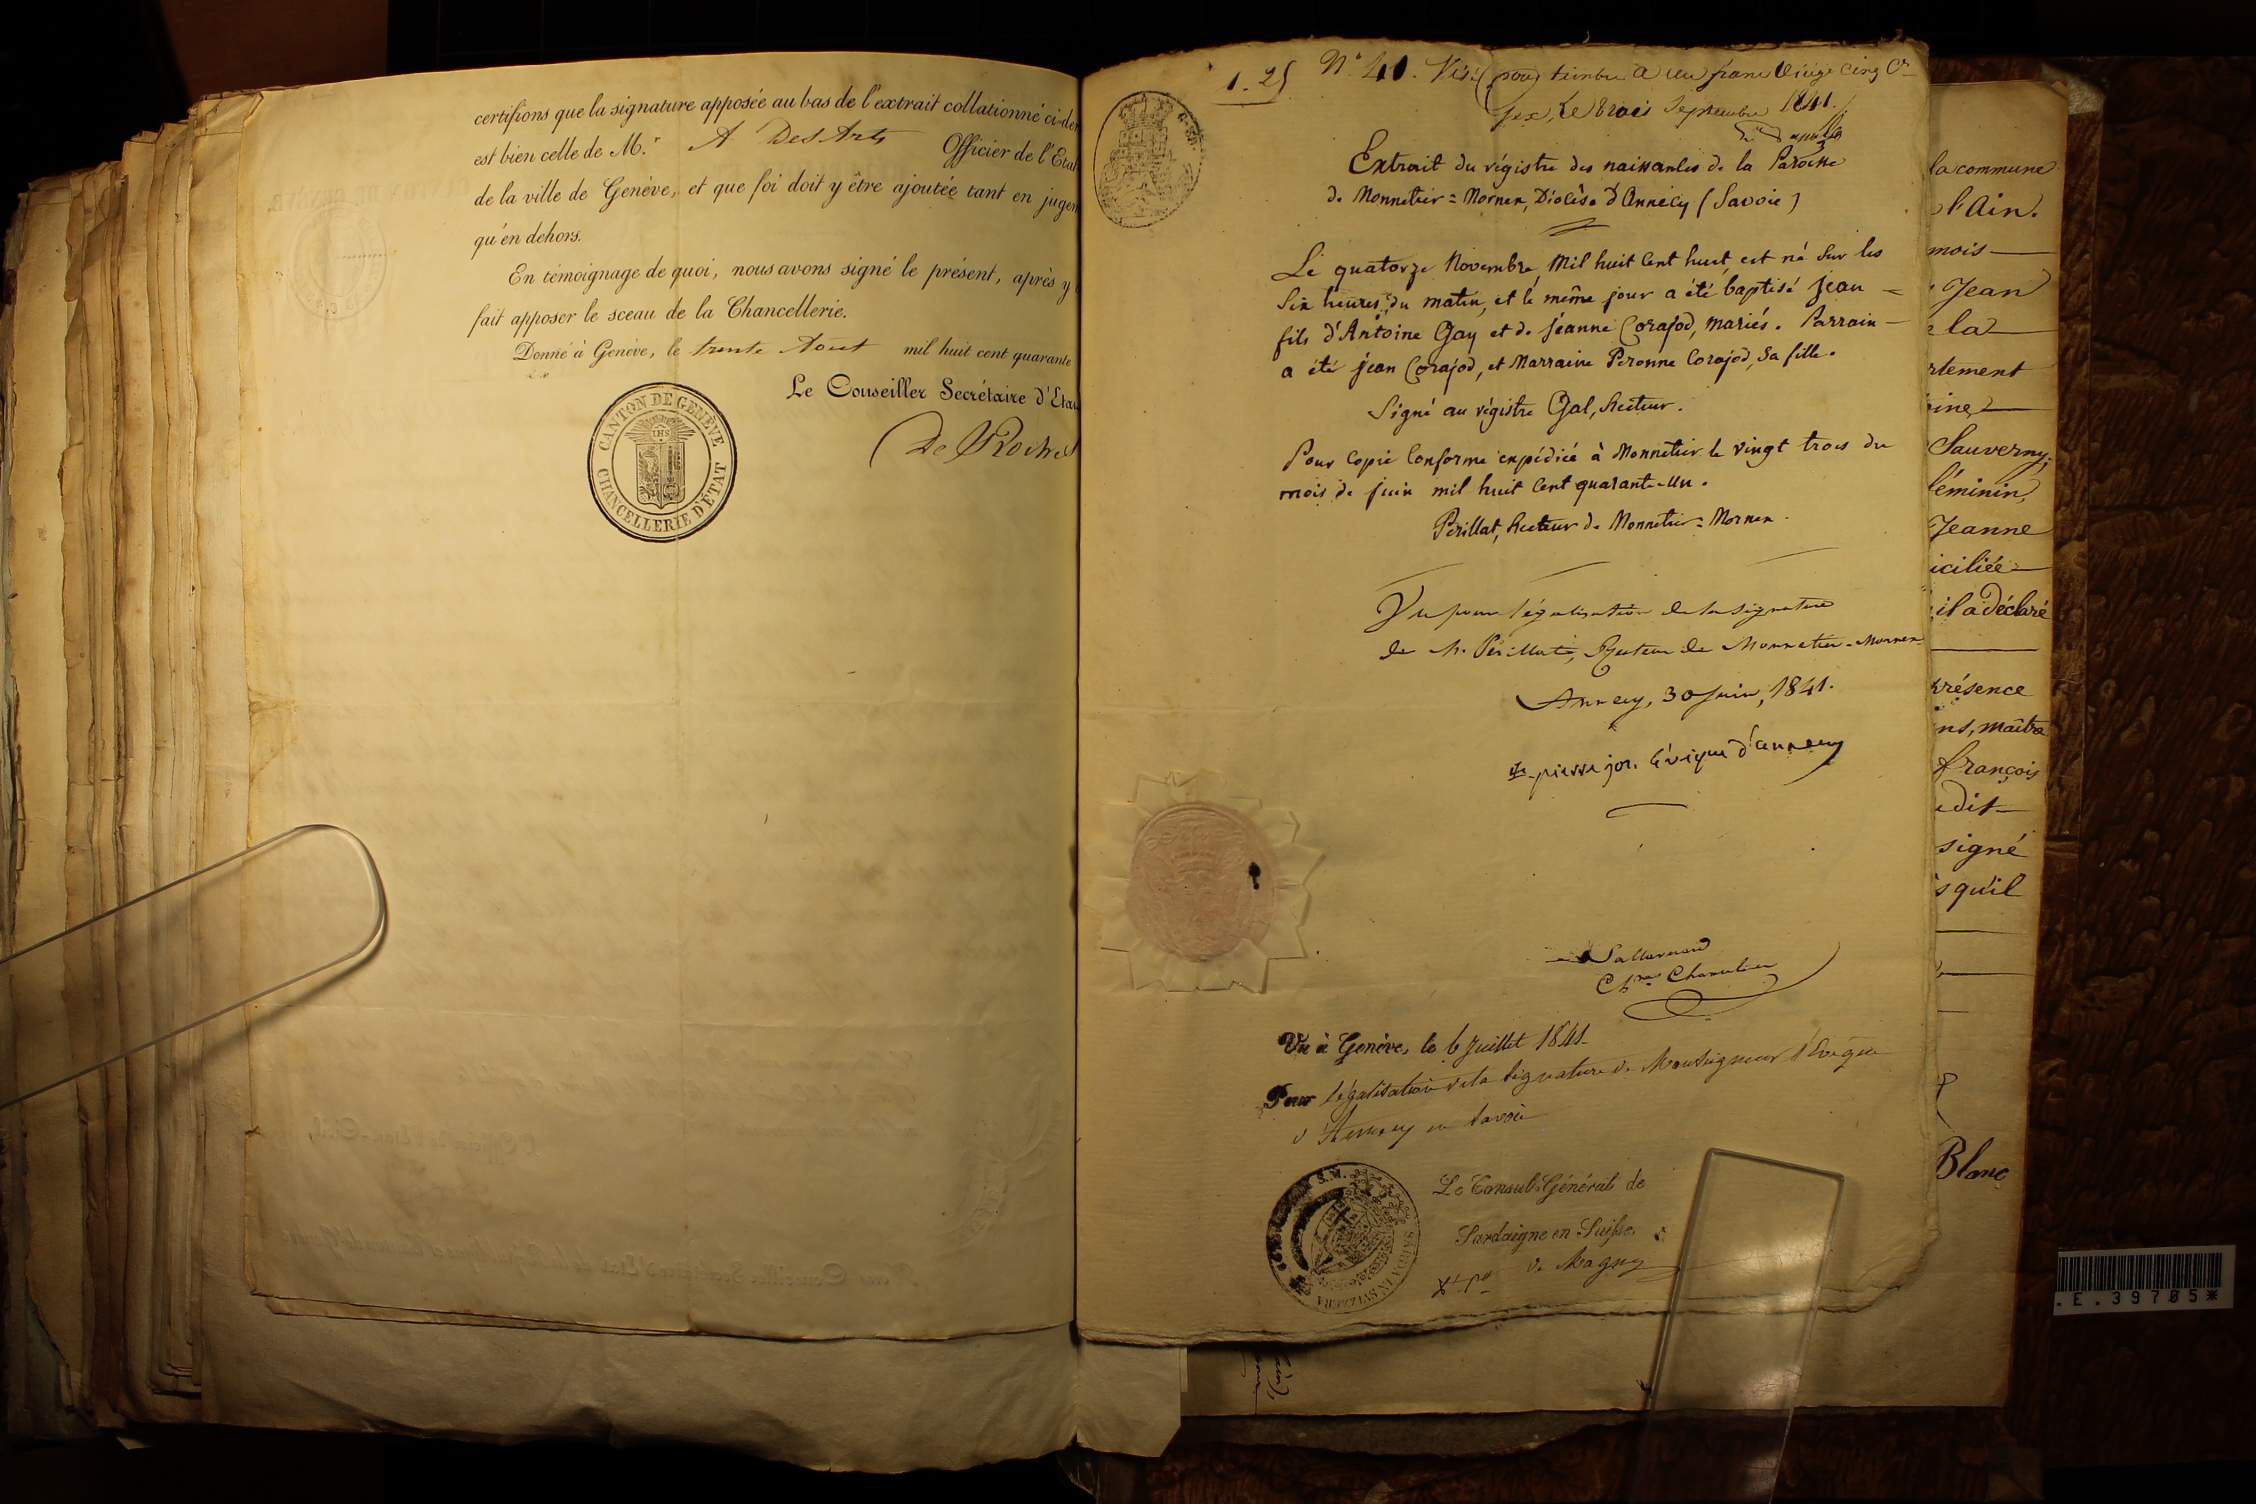 certifions que la signature apposée au bas de l'extrait collationné ci-de
est bien celle de M.r A DesArts Officier de l'Etat
de la ville de Genève, et que foi doit y être ajoutée tant en jugem
qu'en dehors.
En témoignage de quoi, nous avons signé le présent, après y
fait apposer le sceau de la Chancellerie.
Donné à Genève, le trente Aout mil huit cent quarante
Le Conseiller Secrétaire d'Etat
De Roches
CANTON DE GENÈVE
CHANCELLERIE D'ÉTAT
IHS
1.25
N° 41. Visé pour timbre a un franc vingt cinq C.
Gex, le trois Septembre 1841.
Extrait du régistre des naissances de la Paroisse
de Monnetier=Mornex, Diocèse d'Annecy (Savoie)
Le quatorze Novembre, mil huit cent huit, est né sur les
six heures du matin, et le même jour a été baptisé jean =
fils d'Antoine Gay et de jeanne Corajod, mariés. Parrain -
a été jean Corajod, et Marraine Peronne Corajod, sa fille.
Signé au régistre Gal, Recteur.
Pour copie conforme expédiée à Monnetier le vingt trois du
mois de juin mil huit cent quarante-un.
Périllat, Recteur de Monnetier=Mornex.
Vu pour légalisation de la signature
de M. Périllat, Recteur de Monnetier-Mornex
Annecy, 30 Juin, 1841.
pierre jos. évêque d'annecy
Vu à Genève, le 6 Juillet 1841.
Pour légalisation de la signature de Monseigneur l'Evêque
d'Annecy en Savoie
Le Consul Général de
Sardaigne en Suisse,
de Magny
S.M. SARDA IN SVIZZERA
la commune
l'Ain.
mois
Jean
la
rtement
ine
Sauverny,
féminin,
Jeanne
iciliée
il a déclaré
présence
ns, maître
françois
edit
signé
s qu'il
Blanc
.E.39705*